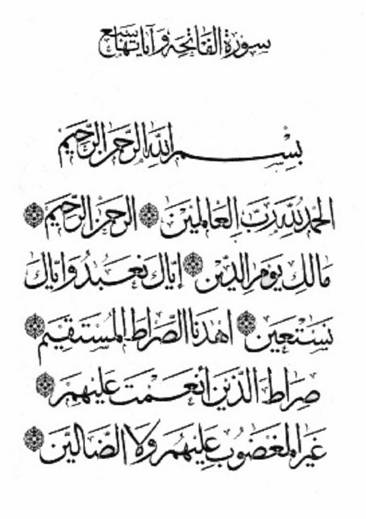 سورة الفاتحة وآياتها سبع
بسم الله الرحمن الرحيم
الحمد لله رب العالمين ۝ الرحمن الرحيم ۝
مالك يوم الدين ۝ إياك نعبد وإياك
نستعين ۝ اهدنا الصراط المستقيم ۝
صراط الذين أنعمت عليهم ۝
غير المغضوب عليهم ولا الضالين ۝